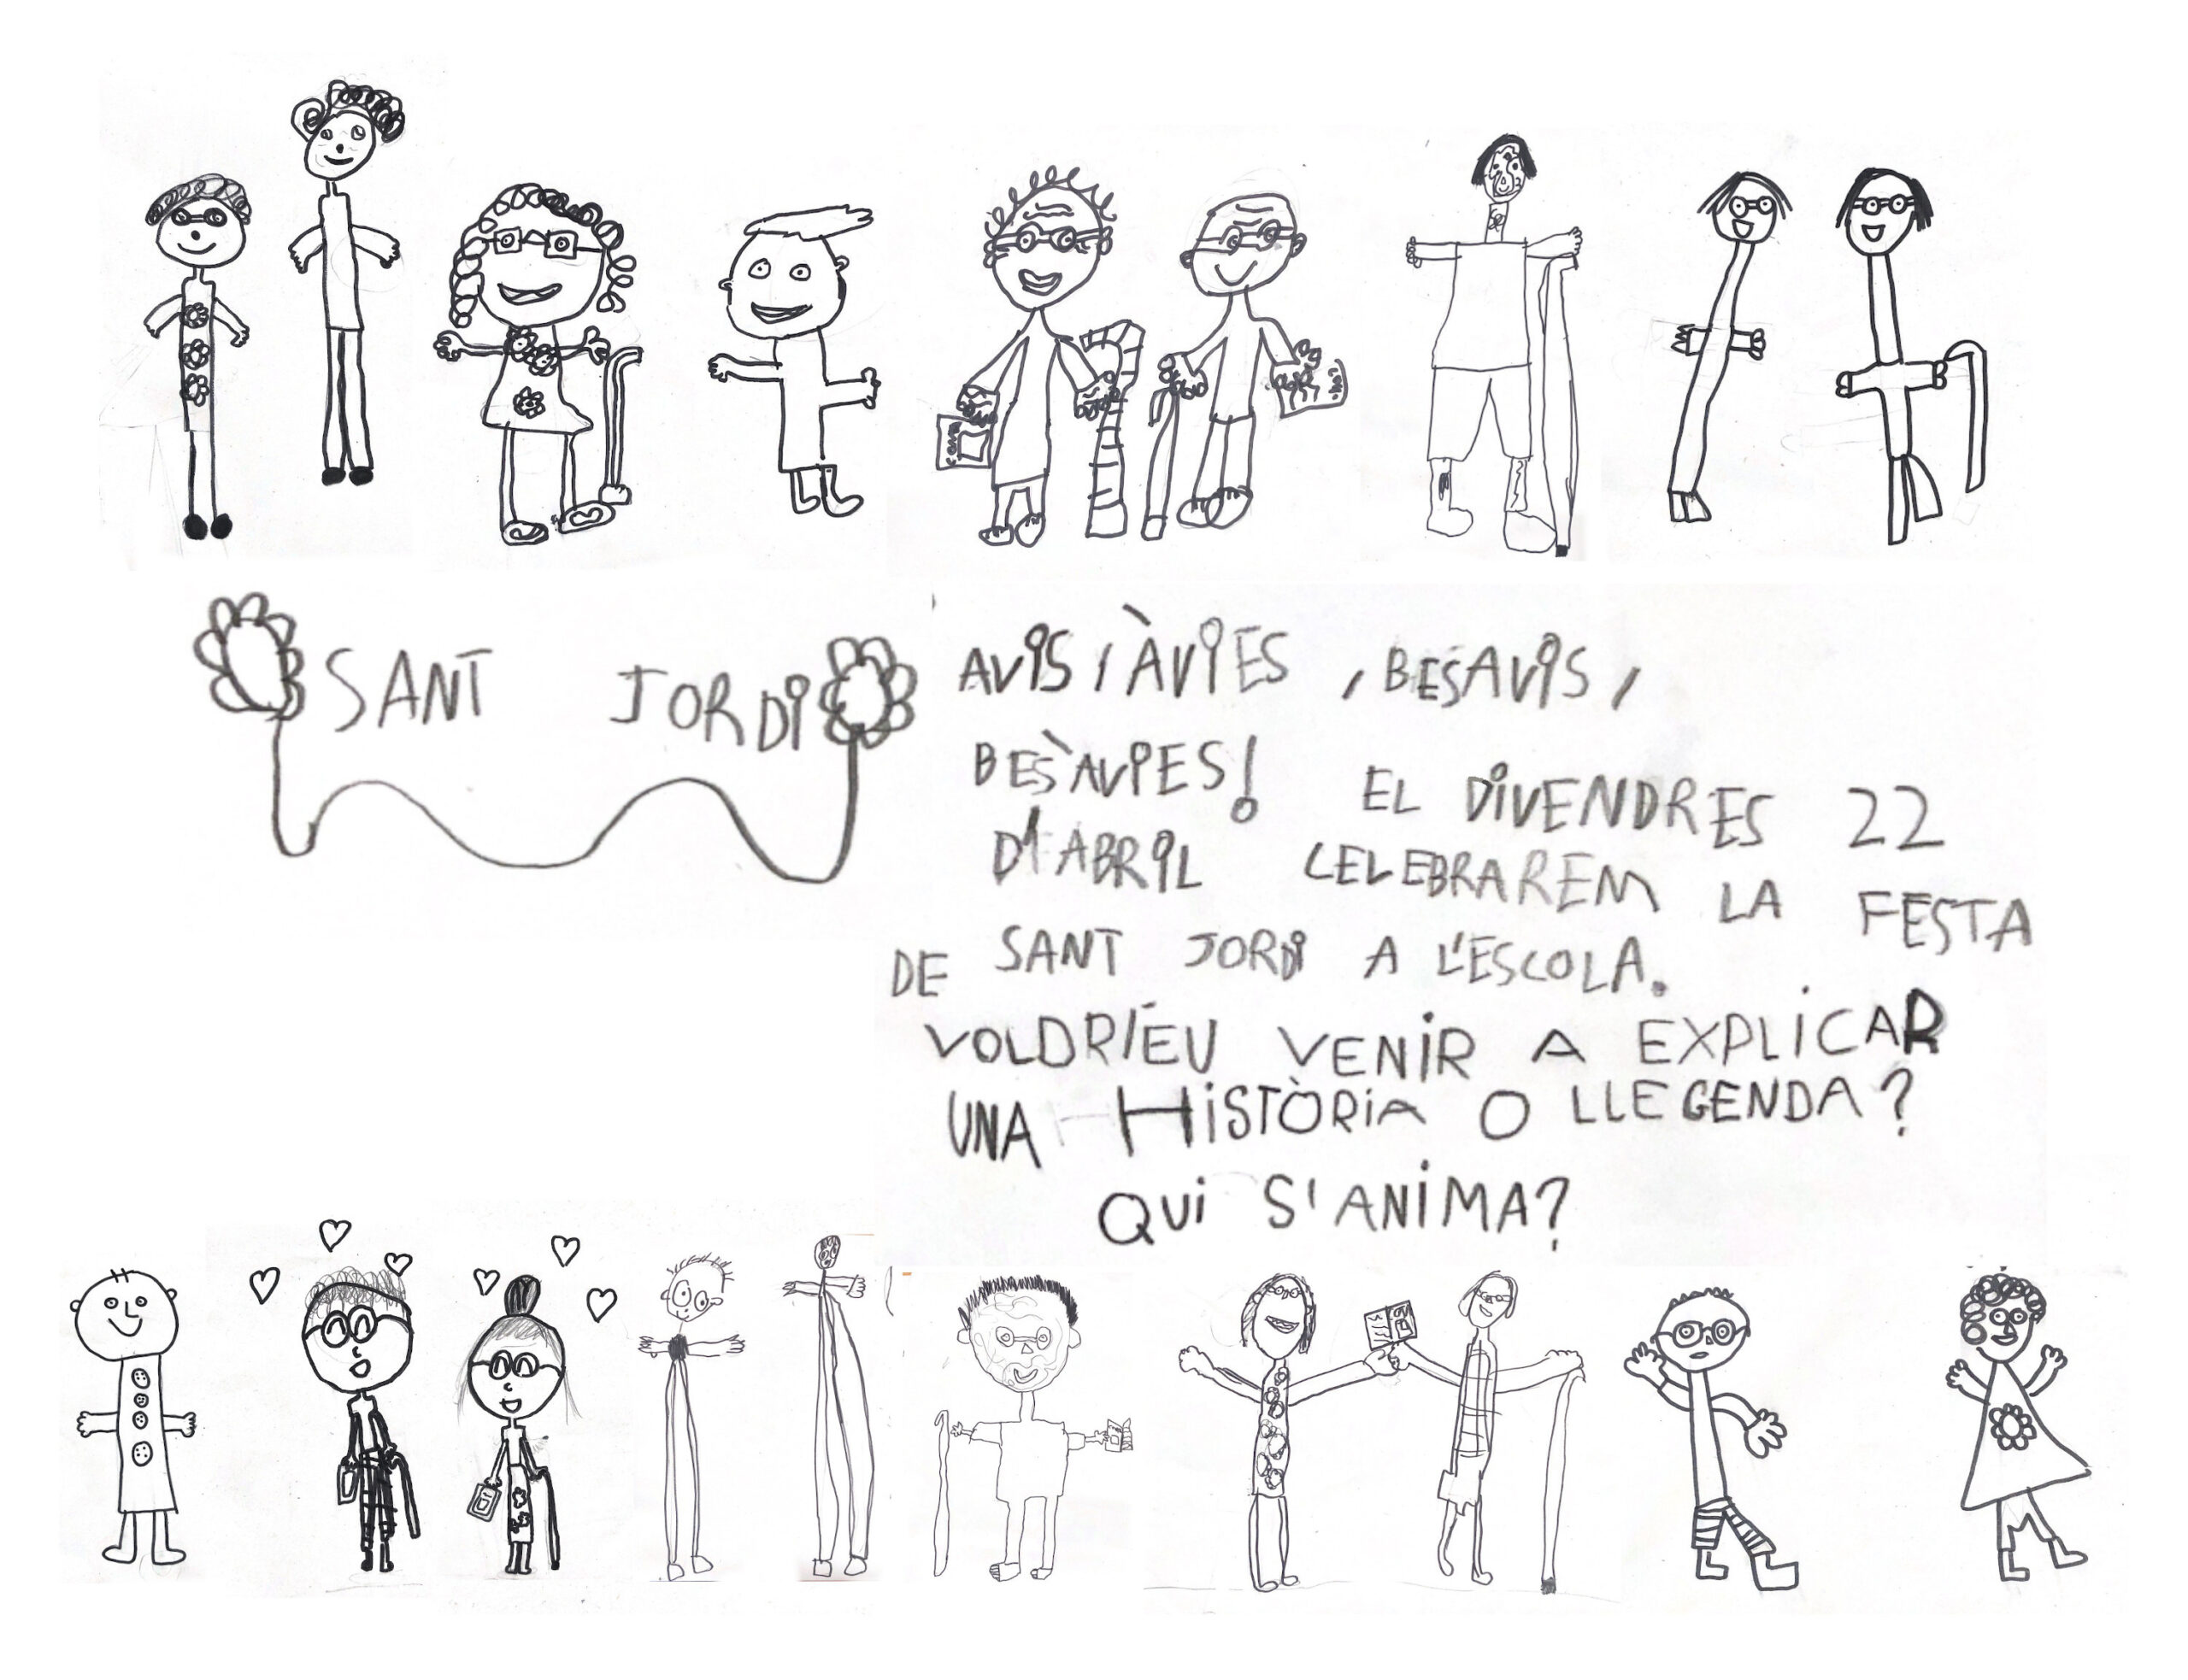 SANT JORDI
AVIS, ÀVIES, BESAVIS,
BESÀVIES!
EL DIVENDRES 22
D'ABRIL CELEBRAREM LA FESTA
DE SANT JORDI A L'ESCOLA.
VOLDRÍEU VENIR A EXPLICAR
UNA HISTÒRIA O LLEGENDA?
QUI S'ANIMA?